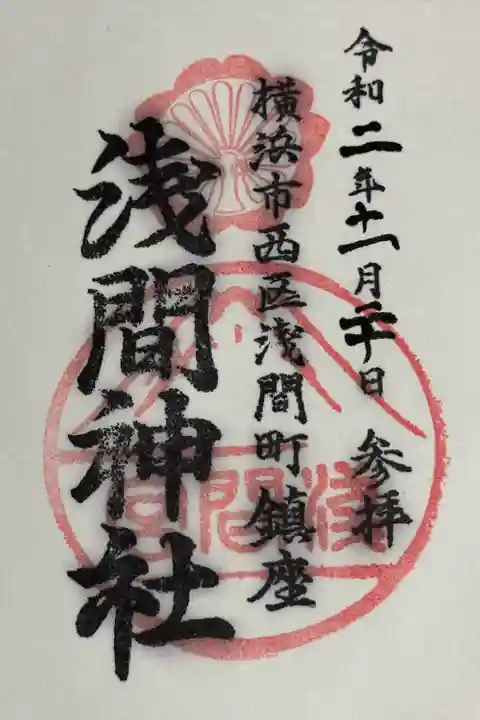 令和二年十一月二十日 参拝
横浜市西区浅間町鎮座
浅間神社
淺間宮